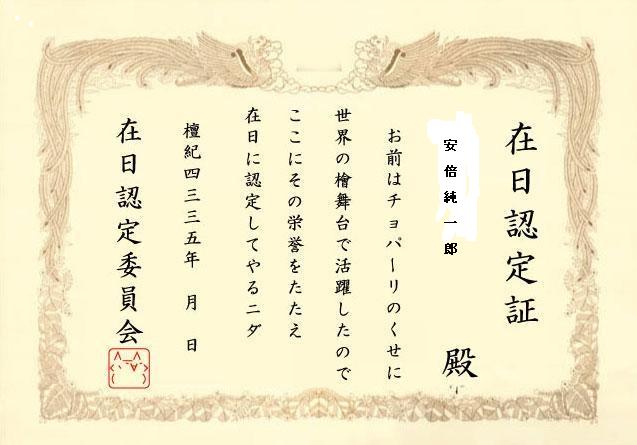 在日認定証
安倍純一郎
殿
お前はチョパーリのくせに
世界の檜舞台で活躍したので
ここにその栄誉をたたえ
在日に認定してやるニダ
檀紀四三三五年 月 日
在日認定委員会